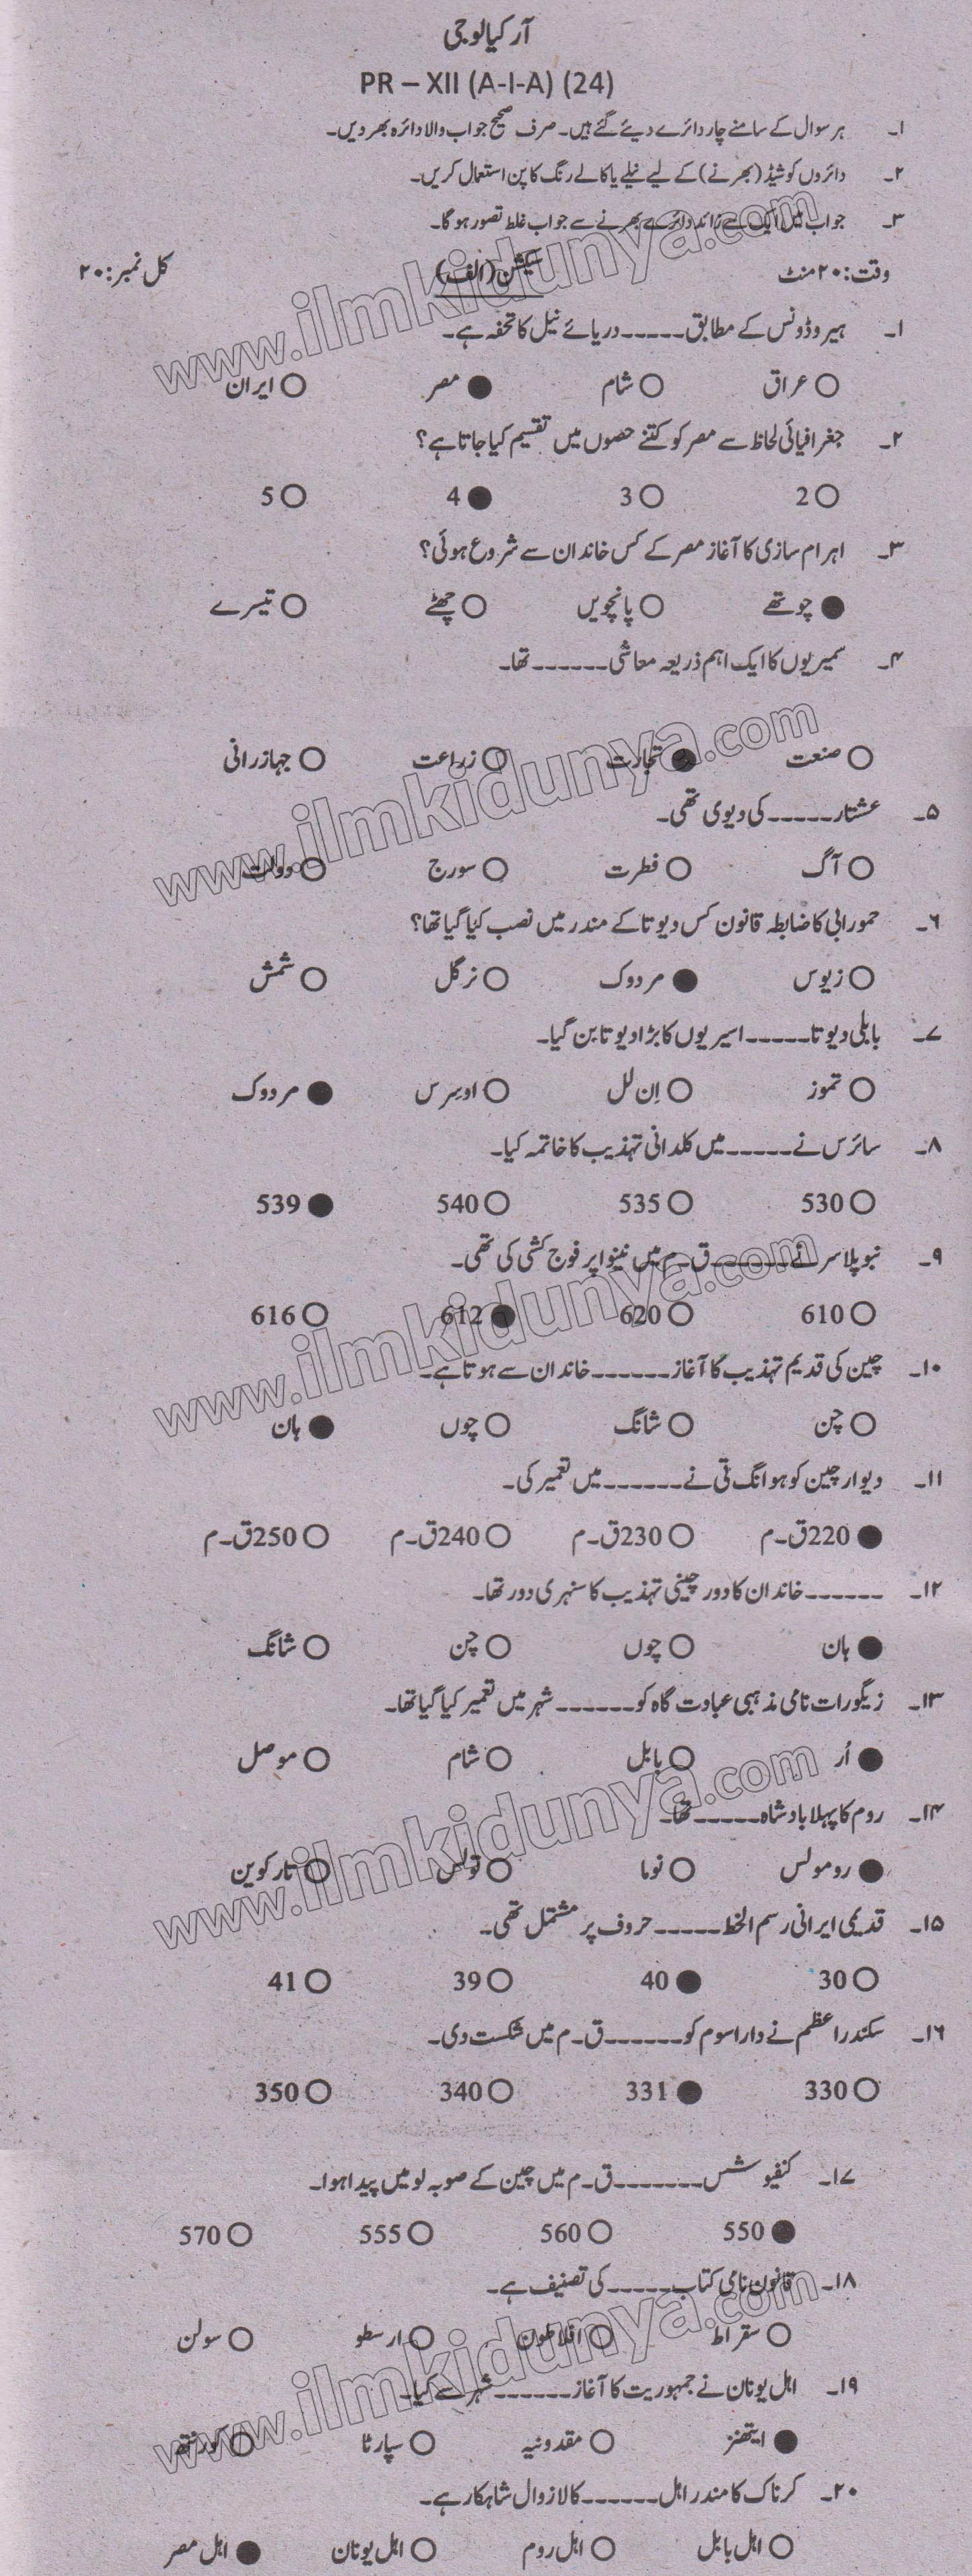 آرکیالوجی
PR – XII (A-I-A) (24)
۱۔ ہر سوال کے سامنے چار دائرے دیئے گئے ہیں۔ صرف صحیح جواب والا دائرہ بھر دیں۔
۲۔ دائروں کو شیڈ (بھرنے) کے لیے نیلے یا کالے رنگ کا پن استعمال کریں۔
۳۔ جواب میں ایک سے زائد دائرے بھرنے سے جواب غلط تصور ہوگا۔
وقت: ۲۰ منٹ سیکشن (الف) کل نمبر: ۲۰
۱۔ ہیروڈوٹس کے مطابق ----- دریائے نیل کا تحفہ ہے۔
○ عراق ○ شام ● مصر ○ ایران
۲۔ جغرافیائی لحاظ سے مصر کو کتنے حصوں میں تقسیم کیا جاتا ہے؟
○ 2 ○ 3 ● 4 ○ 5
۳۔ اہرام سازی کا آغاز مصر کے کس خاندان سے شروع ہوئی؟
● چوتھے ○ پانچویں ○ چھٹے ○ تیسرے
۴۔ سمیریوں کا ایک اہم ذریعہ معاشی ------ تھا۔
○ صنعت ● تجارت ○ زراعت ○ جہازرانی
۵۔ عشتار ----- کی دیوی تھی۔
○ آگ ○ فطرت ○ سورج ○ دولت
۶۔ حمورابی کا ضابطہ قانون کس دیوتا کے مندر میں نصب کیا گیا تھا؟
○ زیوس ● مردوک ○ نرگل ○ شمش
۷۔ بابلی دیوتا ----- اسیریوں کا بڑا دیوتا بن گیا۔
○ تموز ○ اِن لل ○ اوسِرس ● مردوک
۸۔ سائرس نے ----- میں کلدانی تہذیب کا خاتمہ کیا۔
○ 530 ○ 535 ○ 540 ● 539
۹۔ نبوپلاسر نے ------ ق۔م میں نینوا پر فوج کشی کی تھی۔
○ 610 ○ 620 ● 612 ○ 616
۱۰۔ چین کی قدیم تہذیب کا آغاز ------ خاندان سے ہوتا ہے۔
○ چن ○ شانگ ○ چوں ● ہان
۱۱۔ دیوار چین کو ہوانگ تی نے ------ میں تعمیر کی۔
● 220ق۔م ○ 230ق۔م ○ 240ق۔م ○ 250ق۔م
۱۲۔ ------ خاندان کا دور چینی تہذیب کا سنہری دور تھا۔
● ہان ○ چوں ○ چن ○ شانگ
۱۳۔ زیگورات نامی مذہبی عبادت گاہ کو ------ شہر میں تعمیر کیا گیا تھا۔
● اُر ○ بابل ○ شام ○ موصل
۱۴۔ روم کا پہلا بادشاہ ----- تھا۔
● رومولس ○ نوما ○ تولس ○ تارکوین
۱۵۔ قدیمی ایرانی رسم الخط ----- حروف پر مشتمل تھی۔
○ 30 ● 40 ○ 39 ○ 41
۱۶۔ سکندر اعظم نے دارا سوم کو ------ ق۔م میں شکست دی۔
○ 330 ● 331 ○ 340 ○ 350
۱۷۔ کنفیوشس ------- ق۔م میں چین کے صوبہ لو میں پیدا ہوا۔
● 550 ○ 560 ○ 555 ○ 570
۱۸۔ قانون نامی کتاب ----- کی تصنیف ہے۔
○ سقراط ○ افلاطون ○ ارسطو ○ سولن
۱۹۔ اہل یونان نے جمہوریت کا آغاز ------ شہر سے کیا۔
● ایتھنز ○ مقدونیہ ○ سپارٹا ○ کورنتھ
۲۰۔ کرناک کا مندر اہل ------ کا لازوال شاہکار ہے۔
○ اہل بابل ○ اہل روم ○ اہل یونان ● اہل مصر
www.ilmkidunya.com
www.ilmkidunya.com
www.ilmkidunya.com
www.ilmkidunya.com
www.ilmkidunya.com